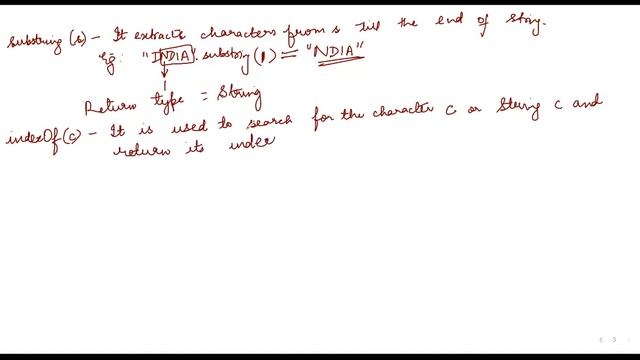 substring (s) - It extracts characters from s till the end of string.
Eg: "INDIA". substring (1) = "NDIA"
1
Return type = String
indexOf (c) - It is used to search for the character c or string c and
return its index
< 3 >